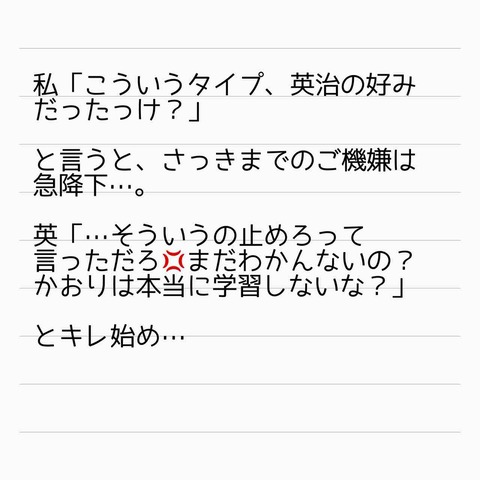 私「こういうタイプ、英治の好み
だったっけ？」
と言うと、さっきまでのご機嫌は
急降下…。
英「…そういうの止めろって
言っただろ💢まだわかんないの？
かおりは本当に学習しないな？」
とキレ始め…